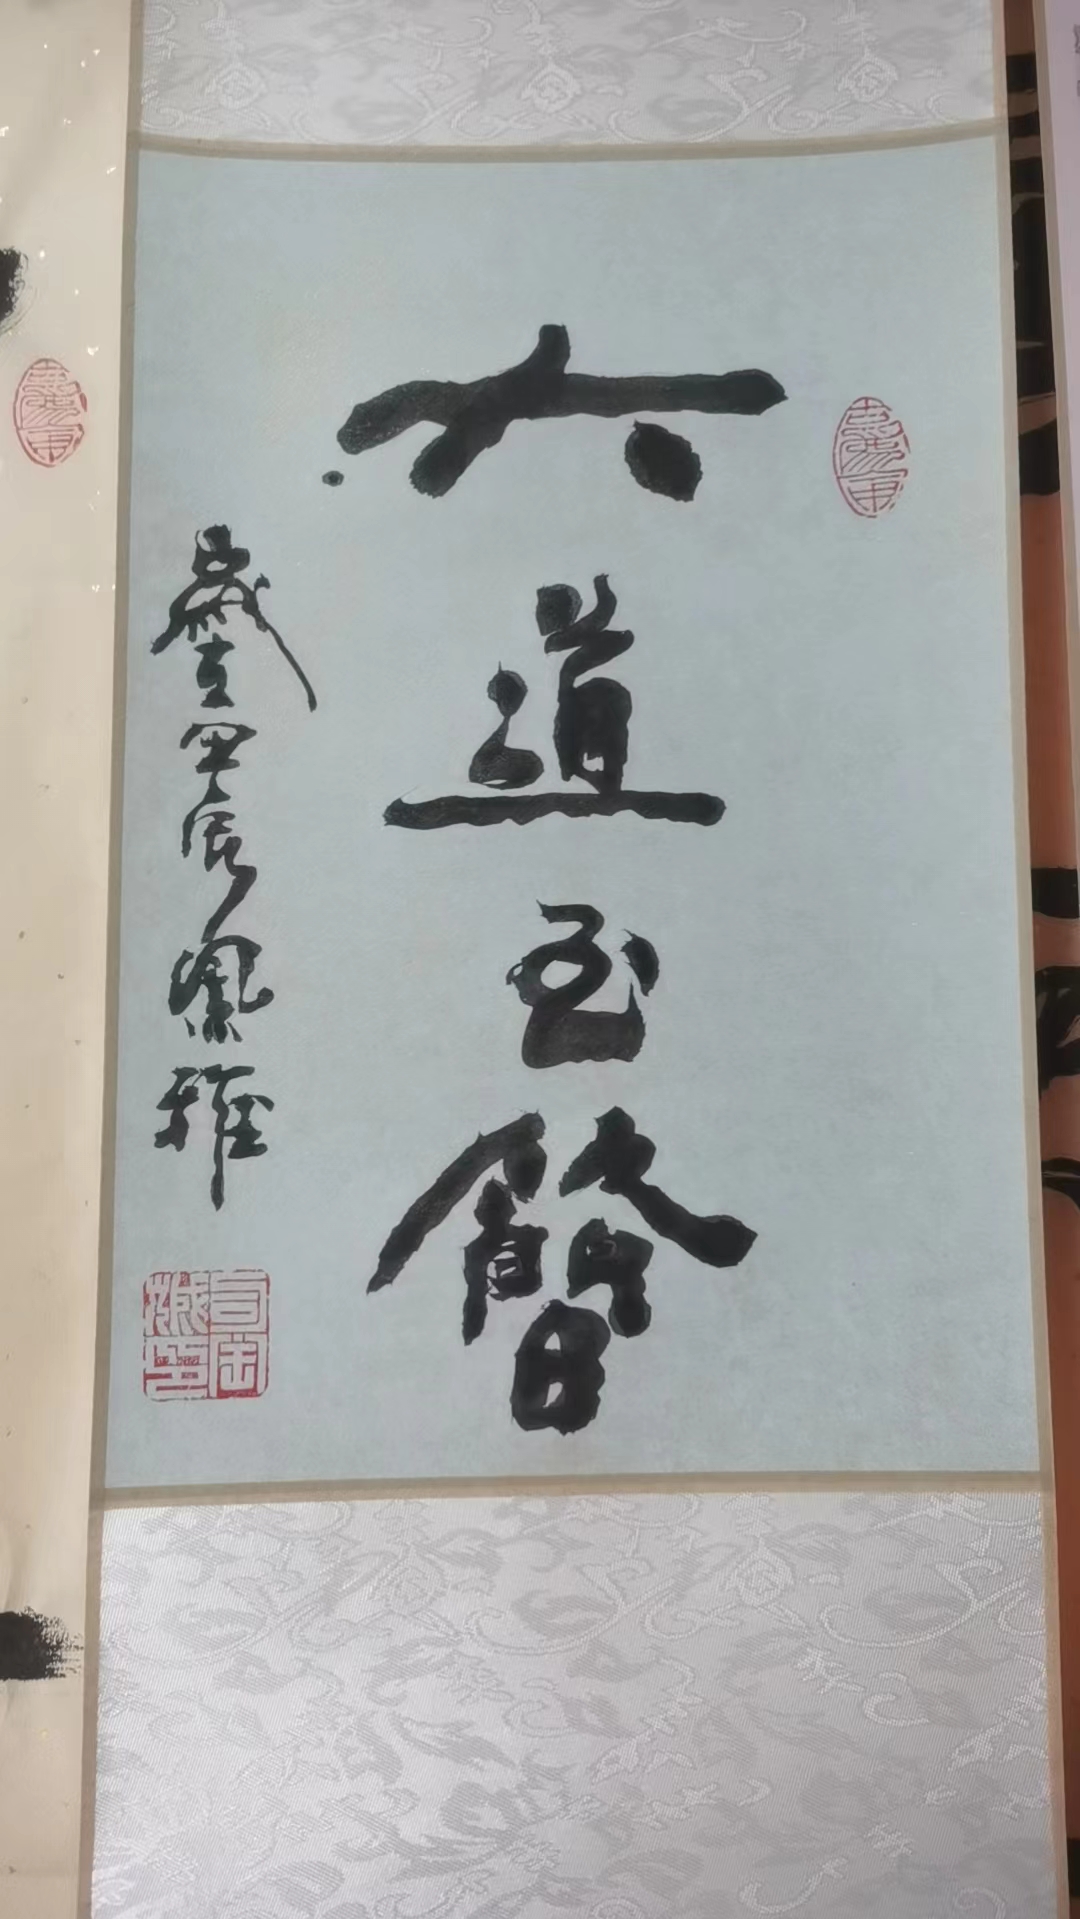 大道至簡
歲在甲辰鳳雅